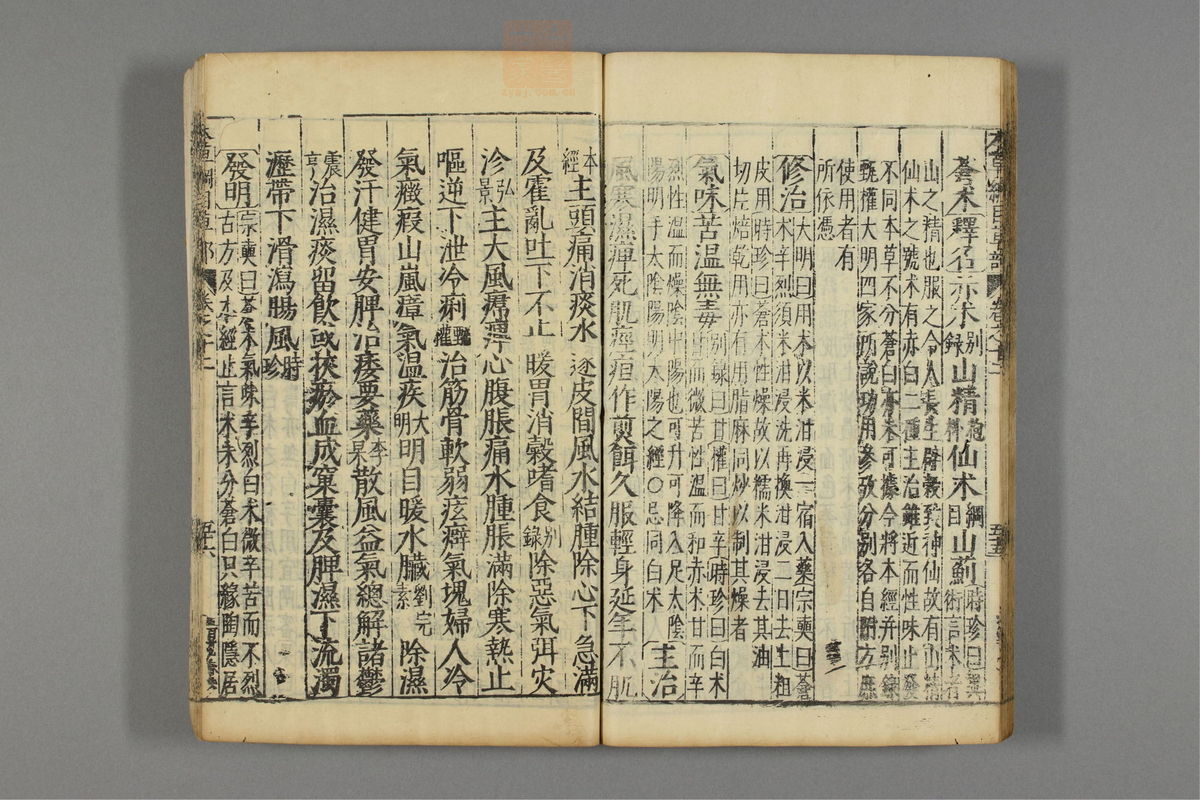 蒼术釋名赤术別錄山精抱朴仙术綱目山薊時珍曰異術言术者
山之精也服之令人長生辟穀致神仙故有山精
仙术之號术有赤白二種主治雖近而性味止發
不同本草不分蒼白亦未可據今將本經并別錄
甄權大明四家所說功用參攷分別各自附方庶
使用者有
所依憑
修治大明曰用术以米泔浸一宿入藥宗奭曰蒼
术辛烈須米泔浸洗再換泔浸二日去上粗
皮用時珍曰蒼术性燥故以糯米泔浸去其油
切片焙乾用亦有用脂麻同炒以制其燥者
氣味苦溫無毒別錄曰甘權曰甘辛時珍曰白术
甘而微苦性溫而和赤术甘而辛
烈性溫而燥陰中陽也可升可降入足太陰
陽明手太陰陽明太陽之經○忌同白术主治
風寒濕痺死肌痙疸作煎餌久服輕身延年不飢
本經主頭痛消痰水逐皮間風水結腫除心下急滿
及霍亂吐下不止暖胃消穀嗜食別錄除惡氣弭灾
沴弘景主大風𤸷痺心腹脹痛水腫脹滿除寒熱止
嘔逆下泄冷痢甄權治筋骨軟弱痃癖氣塊婦人冷
氣癥瘕山嵐瘴氣溫疾大明明目暖水臟劉完素除濕
發汗健胃安脾治痿要藥李杲散風益氣總解諸鬱
震亨治濕痰留飲或挾瘀血成窠囊及脾濕下流濁
瀝帶下滑瀉腸風時珍
發明宗奭曰蒼术氣味辛烈白术微辛苦而不烈
古方及本經止言术未分蒼白只緣陶隱居